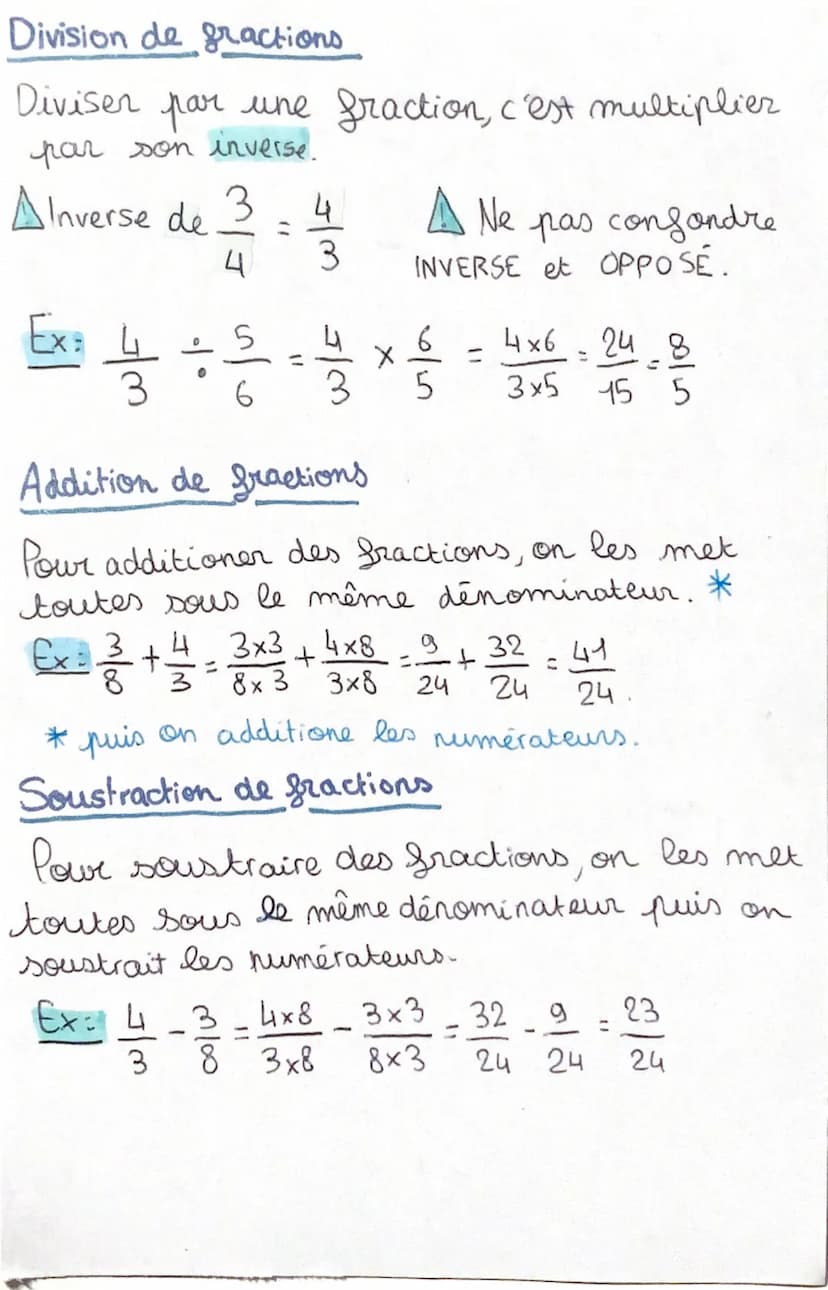 Division de fractions
Diviser par une fraction, c'est multiplier
par son inverse.
⚠ Inverse de 3/4 = 4/3 ⚠ Ne pas confondre
INVERSE et OPPOSÉ.
Ex: 4/3 ÷ 5/6 = 4/3 × 6/5 = 4×6/3×5 = 24/15 = 8/5
Addition de fractions
Pour additioner des fractions, on les met
toutes sous le même dénominateur. *
Ex: 3/8 + 4/3 = 3×3/8×3 + 4×8/3×8 = 9/24 + 32/24 = 41/24.
* puis on additione les numérateurs.
Soustraction de fractions
Pour soustraire des fractions, on les met
toutes sous le même dénominateur puis on
soustrait les numérateurs.
Ex: 4/3 - 3/8 = 4×8/3×8 - 3×3/8×3 = 32/24 - 9/24 = 23/24